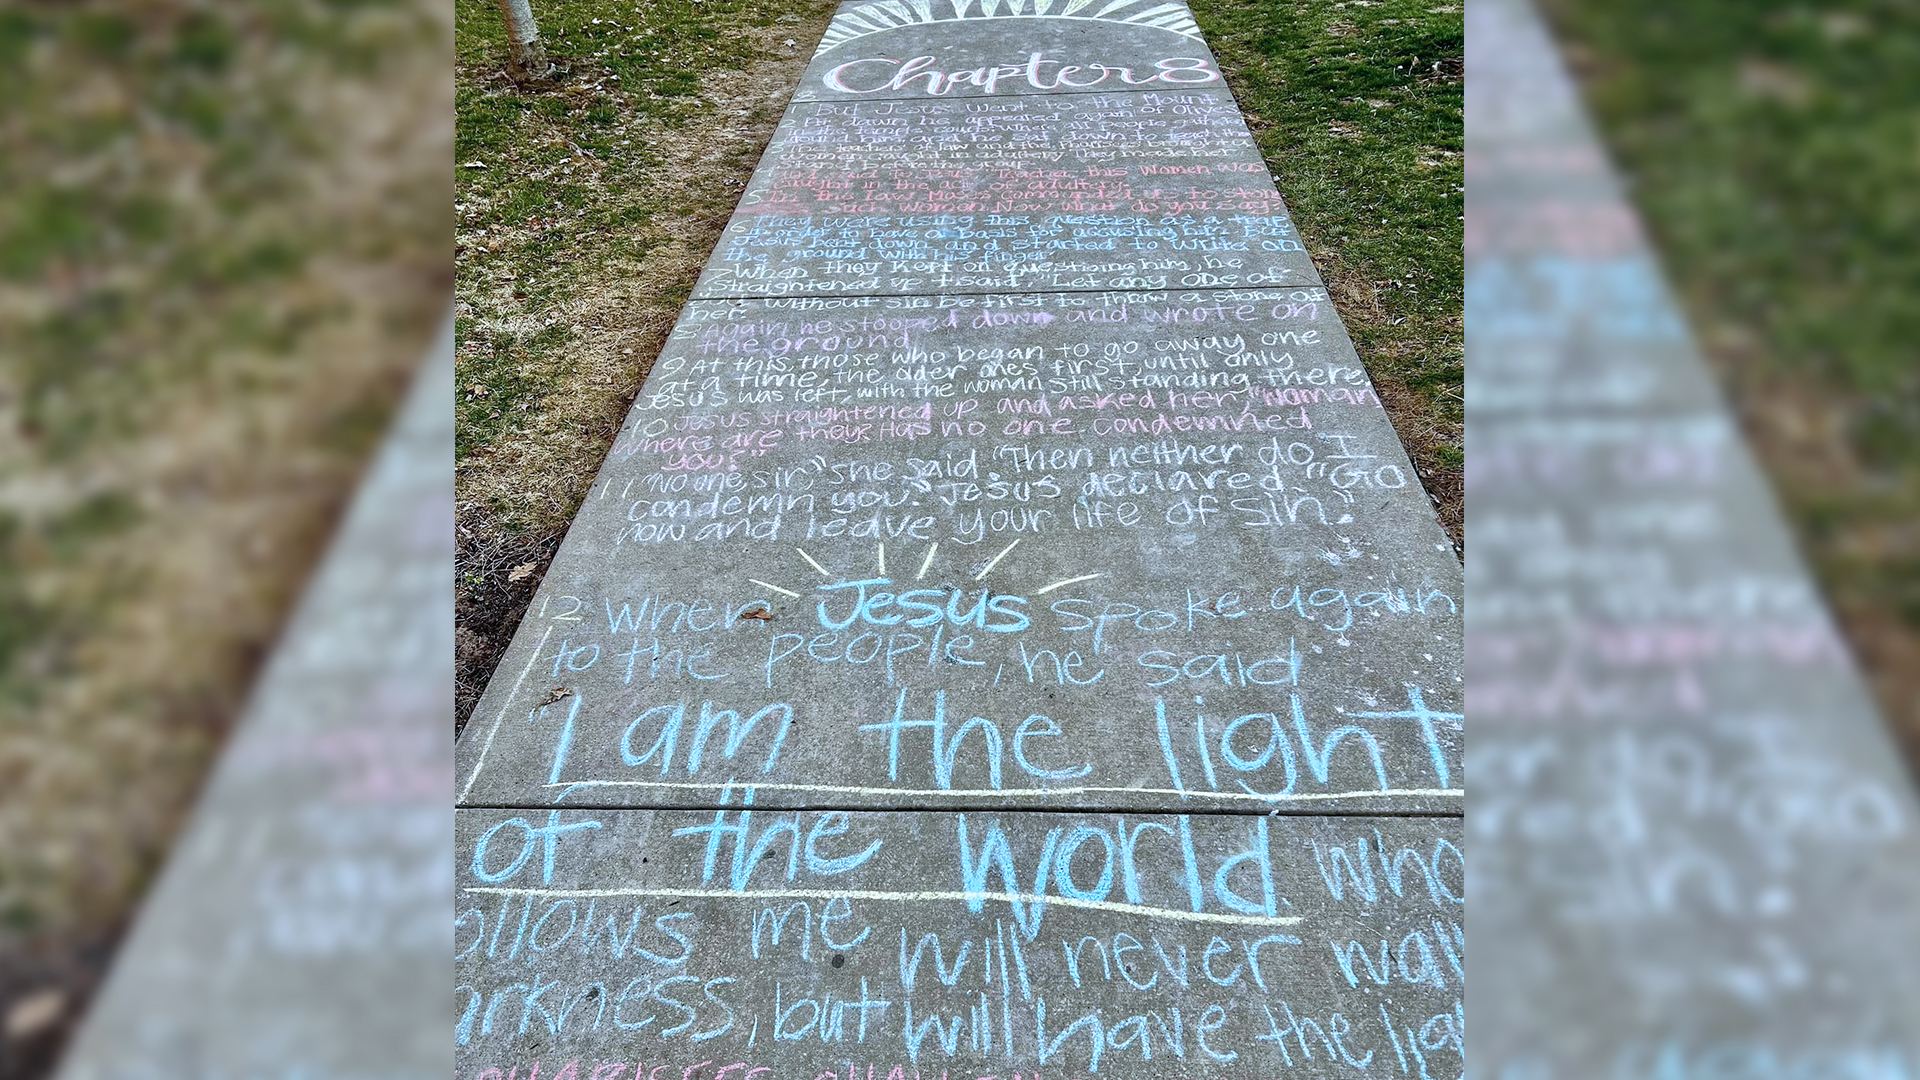 Chapter 8
But Jesus went to the Mount
of Olives
2 At dawn he appeared again
in the temple courts where all people
around him, and he sat down to teach the
3 The teachers of law and the Pharisees brought a
women caught in adultery They made her
the group
and said to Jesus Teacher, this women was
caught in the act of adultery.
5 In the law Moses commanded us to stone
such woman Now what do you say
6 They were using this question as a trap
in order to have a basis for accusing him. But
Jesus bent down and started to write on
the ground with his finger
7 When they kept on questioning him, he
straightened up & said, "Let any one of
you without sin be first to throw a stone at
her."
8 Again he stooped down and wrote on
the ground
9 At this, those who began to go away one
at a time, the older ones first, until only
Jesus was left, with the woman still standing there
10 Jesus straightened up and asked her, "Woman
where are they? Has no one condemned
you?"
11 "No one, sir," she said "Then neither do I
condemn you." Jesus declared "Go
now and leave your life of sin."
12 When Jesus spoke again
to the people, he said
"I am the light
of the world who
ollows me will never wal
arkness, but will have the lig